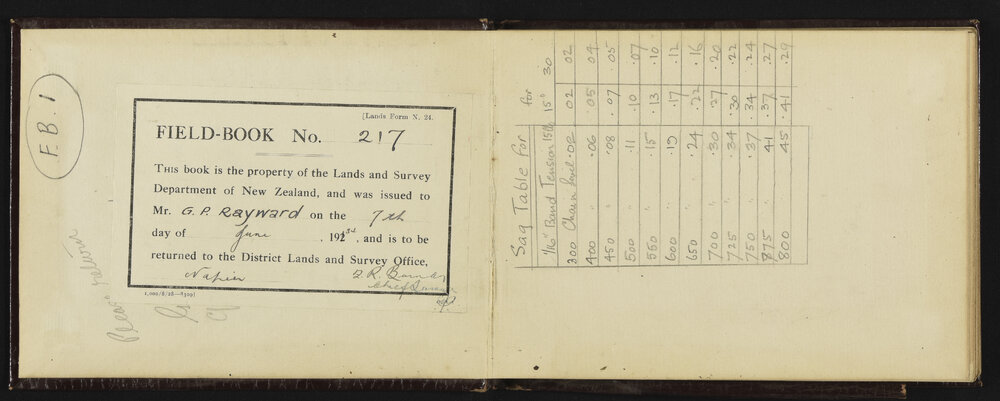 F.B. 1
[Lands Form N. 24.
FIELD-BOOK No. 217
THIS book is the property of the Lands and Survey
Department of New Zealand, and was issued to
Mr. G. P. Rayward on the 7th
day of June , 193, and is to be
returned to the District Lands and Survey Office,
Napier
Chief
Please return
Sag Table for for
1/16" Band Tension 15lb 15° 30
300 Chain level .02 .02 02
400 " .06 .05 04
450 " .08 .07 .05
500 " .11 .10 .07
550 " .15 .13 .10
600 " .19 .17 .12
650 " .24 .22 .16
700 " .30 .27 .20
725 " .34 .30 .22
750 " .37 .34 .24
775 " 41 .37 .27
800 " 45 .41 .29